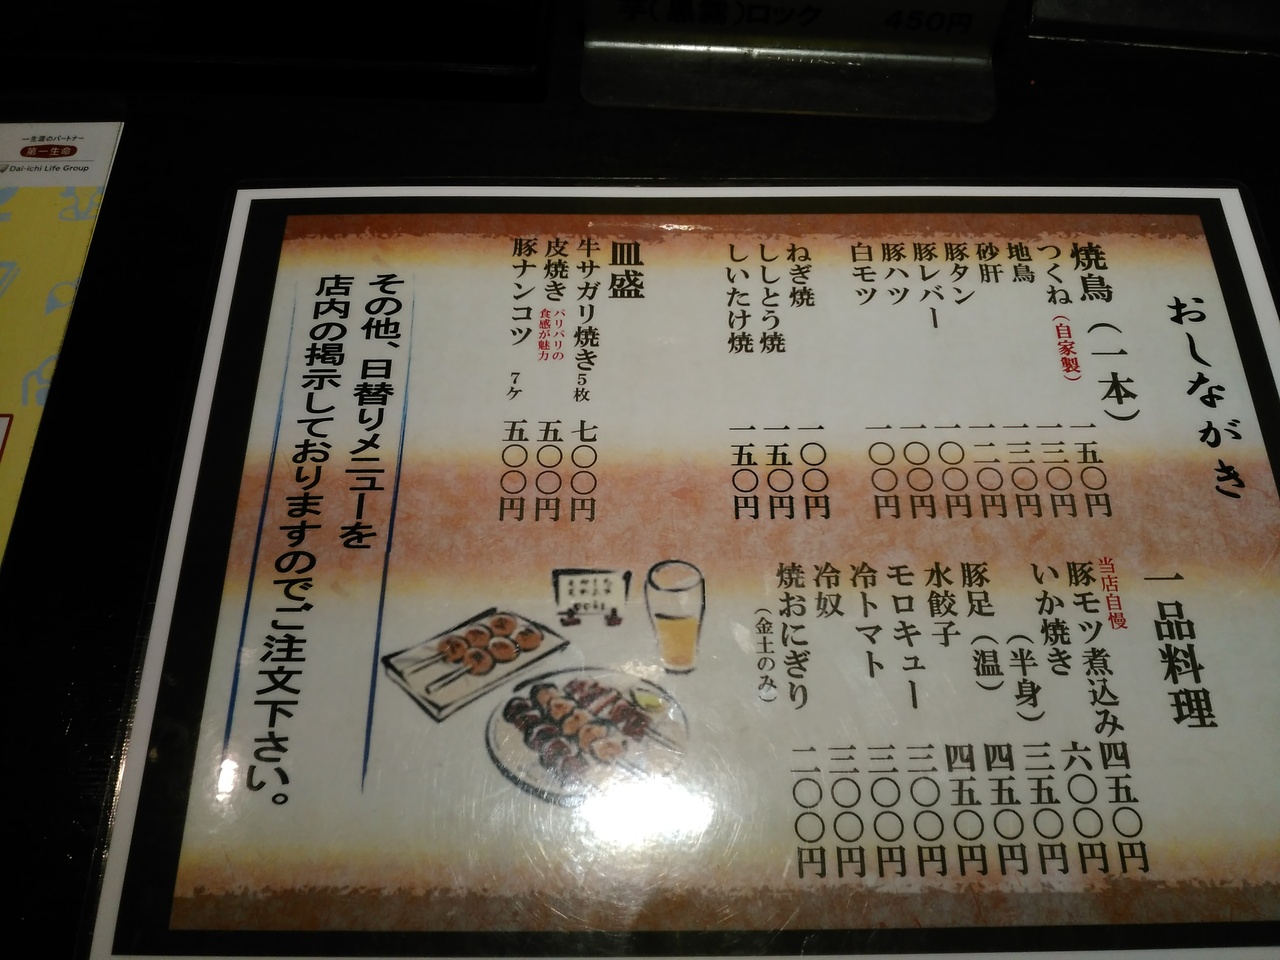 ロック 450円
一生涯のパートナー
第一生命
Dai-ichi Life Group
おしながき
焼鳥（一本）
つくね（自家製） 一五〇円
地鳥 一三〇円
砂肝 一三〇円
豚タン 一二〇円
豚レバー 一〇〇円
豚ハツ 一〇〇円
白モツ 一〇〇円
ねぎ焼 一〇〇円
ししとう焼 一五〇円
しいたけ焼 一五〇円
皿盛
牛サガリ焼き 5枚 七〇〇円
皮焼き パリパリの食感が魅力 五〇〇円
豚ナンコツ 7ケ 五〇〇円
一品料理
当店自慢
豚モツ煮込み 四五〇円
いか焼き 六〇〇円
（半身） 三五〇円
豚足（温） 四五〇円
水餃子 四五〇円
モロキュー 三〇〇円
冷トマト 三〇〇円
冷奴 三〇〇円
焼おにぎり 二〇〇円
（金土のみ）
その他、日替りメニューを
店内の掲示しておりますのでご注文下さい。